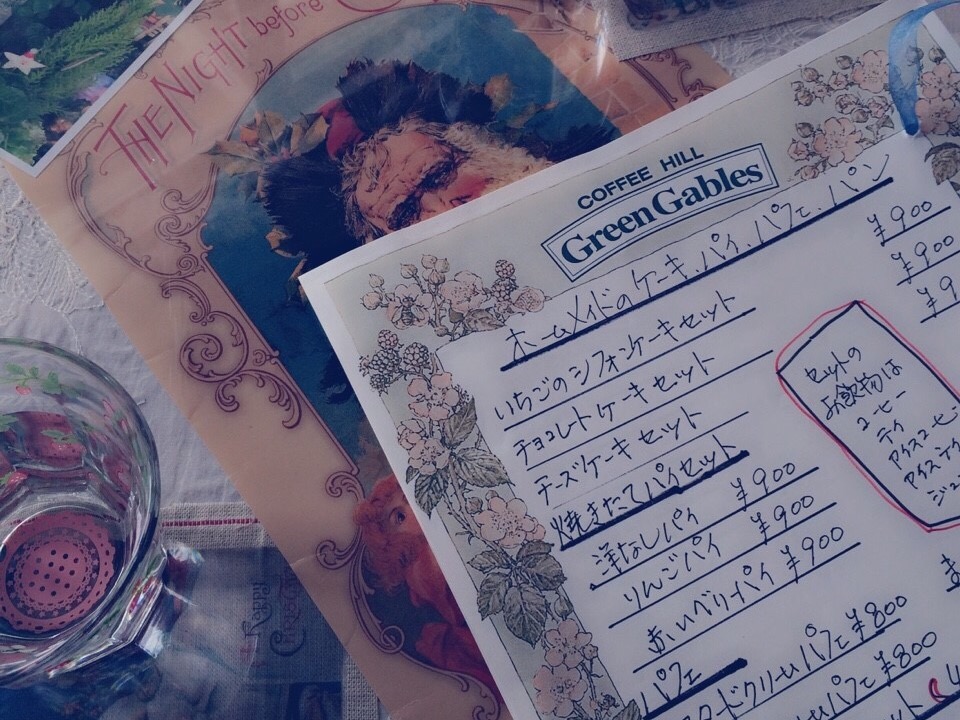 THE NIGHT before
COFFEE HILL
Green Gables
ホームメイドのケーキ、パイ、パフェ、パン
いちごのシフォンケーキセット ¥900
チョコレートケーキセット ¥900
チーズケーキセット ¥9
焼きたてパイセット
洋なしパイ ¥900
りんごパイ ¥900
赤いベリーパイ ¥900
パフェ
タードクリームパフェ ¥800
パフェ ¥800
セットの
お飲物は
コーヒー
ティ
アイスコーヒ
アイスティ
ジュ
Happy